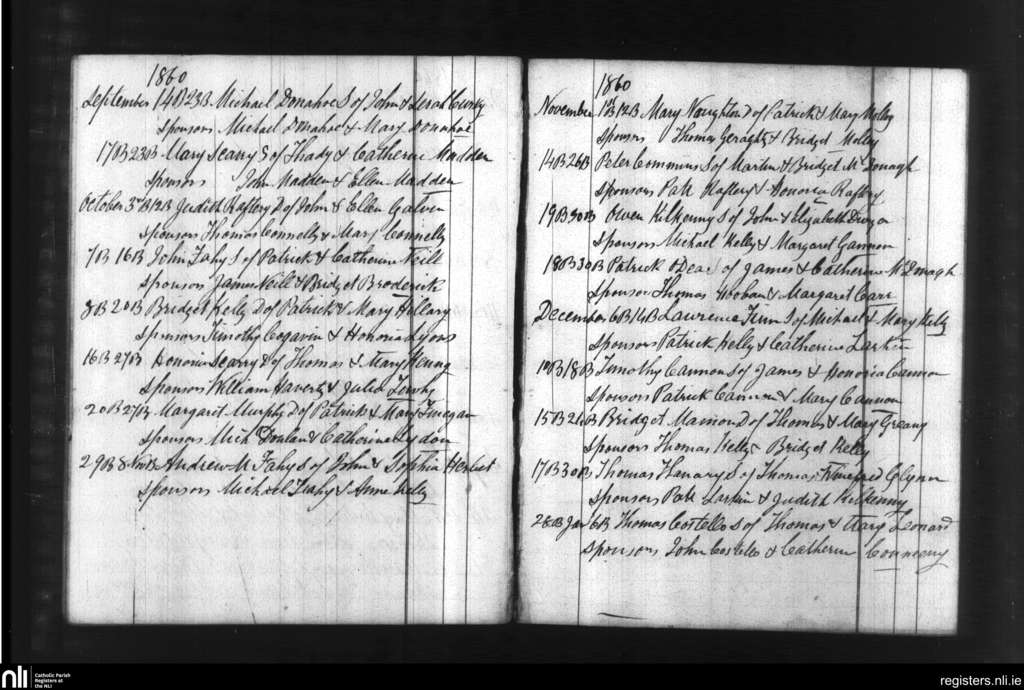 1860
September 14B 23B Michael Donahoe S of John & Sarah
Sponsors Michael Donahoe & Mary Donahoe
17B 23B Mary Scarry of Thady & Catherine Madden
Sponsors John Madden & Ellen Madden
October 3rd B 12B Judith Raftery D of John & Ellen Galvin
Sponsors Thomas Connelly & Mary Connelly
7B 16B John Fahy S of Patrick & Catherine Neill
Sponsors James Neill & Bridget Broderick
8B 20B Bridget Kelly D of Patrick & Mary Hillary
Sponsors Timothy Cogavin & Honoria Lyons
16B 27B Honoria Scarry D of Thomas & Mary Henry
Sponsors William Haverty & Julia
20B 27B Margaret Murphy D of Patrick & Mary Finegan
Sponsors Mich Donlan & Catherine Lydon
29B 8 Nov B Andrew M Fahy S of John & Sophia Herbert
Sponsors Michael Leahy & Anne Kelly
1860
November 1st B 12B Mary Noughton D of Patrick & Mary Molloy
Sponsors Thomas Geraghty & Bridget Molloy
14B 26B Peter Commins S of Martin & Bridget McDonagh
Sponsors Patk Raftery & Honoria Raftery
19B 30B Owen Kilkenny S of John & Elizabeth
Sponsors Michael Kelly & Margaret Gannon
18B 30B Patrick ODea S of James & Catherine McDonagh
Sponsors Thomas Hooban & Margaret Carr
December 6B 14B Lawrence Finn S of Michael & Mary Kelly
Sponsors Patrick Kelly & Catherine Larkin
B 18B Timothy Cannon S of James & Honoria Cannon
Sponsors Patrick Cannon & Mary Cannon
15B 26B Bridget Mannion D of Thomas & Mary Greany
Sponsors Thomas Kelly & Bridget Kelly
17B 30B Thomas Flanary S of Thomas & Winefred Glynn
Sponsors Patk Larkin & Judith Kilkenny
28B Jan 6B Thomas Costello S of Thomas & Mary Leonard
Sponsors John Costello & Catherine
nli Catholic Parish
Registers at
the NLI
registers.nli.ie